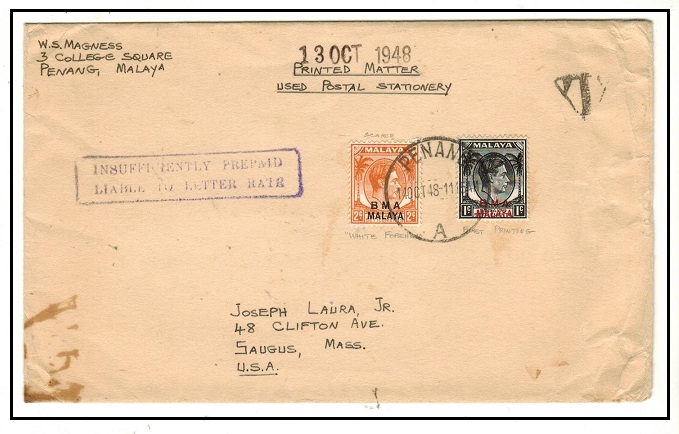 W.S. MAGNESS
3 COLLEGE SQUARE
PENANG, MALAYA
13 OCT 1948
PRINTED MATTER
USED POSTAL STATIONERY
INSUFFICIENTLY PREPAID
LIABLE TO LETTER RATE
MALAYA
2c 2c
BMA
MALAYA
PENANG
14 OCT 48
A
MALAYA
1c 1c
BMA
MALAYA
"WHITE
FIRST PRINTING
JOSEPH LAURA, JR.
48 CLIFTON AVE.
SAUGUS, MASS.
U.S.A.